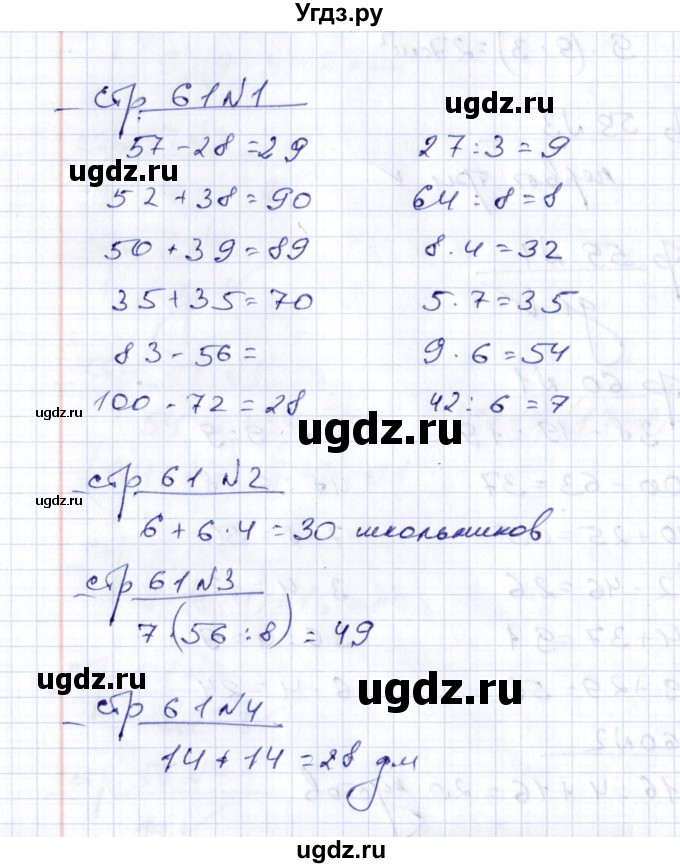 Угдз.ру
стр. 61 N1
57 - 28 = 29
52 + 38 = 90
50 + 39 = 89
35 + 35 = 70
83 - 56 =
100 - 72 = 28
27 : 3 = 9
64 : 8 = 8
8 · 4 = 32
5 · 7 = 35
9 · 6 = 54
42 : 6 = 7
стр 61 N2
6 + 6 · 4 = 30 школьников
стр 61 N3
7 · (56 : 8) = 49
стр 61 N4
14 + 14 = 28 дм
ugdz.ru
ugdz.ru
ugdz.ru
ugdz.ru
ugdz.ru
ugdz.ru
ugdz.ru
ugdz.ru